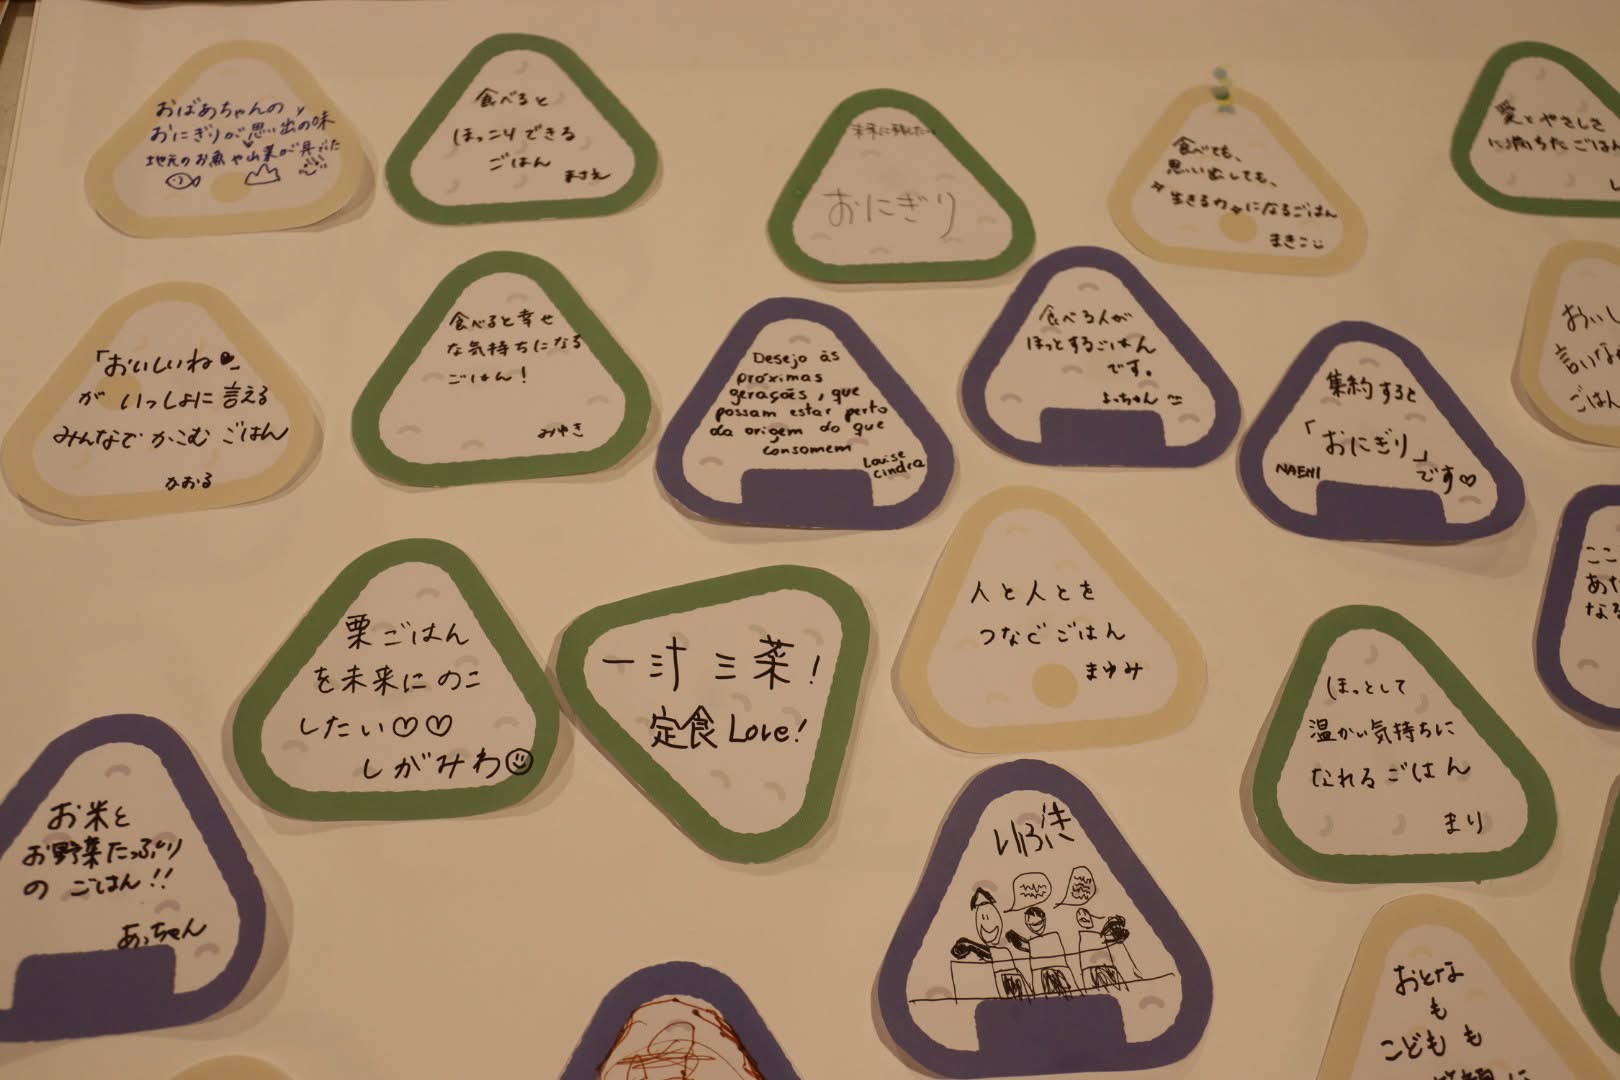 おばあちゃんの
おにぎりが思い出の味
地元のお魚や山菜が
食べると
ほっこりできる
ごはん
まさえ
未来に残したい
おにぎり
食べても、
思い出しても、
生きる力になるごはん
まきこ
愛とやさしさ
に満ちたごはん
「おいしいね」
が いっしょに言える
みんなでかこむ ごはん
かおる
食べると幸せ
な気持ちになる
ごはん!
みゆき
Desejo às
próximas
gerações, que
possam estar perto
da origem do que
consomem
Louise
Cindra
食べる人が
ほっとするごはん
です。
よっちゃん
集約すると
「おにぎり」
です♡
NAEMI
おいし
言いな
ごはん
栗ごはん
を未来にのこ
したい♡♡
しがみわ☺
一汁三菜!
定食Love!
人と人とを
つなぐごはん
まゆみ
ここ
あた
なる
ほっとして
温かい気持ちに
なれるごはん
まり
お米と
お野菜たっぷり
の ごはん!!
あっちゃん
いぶき
おとな
も
こどもも